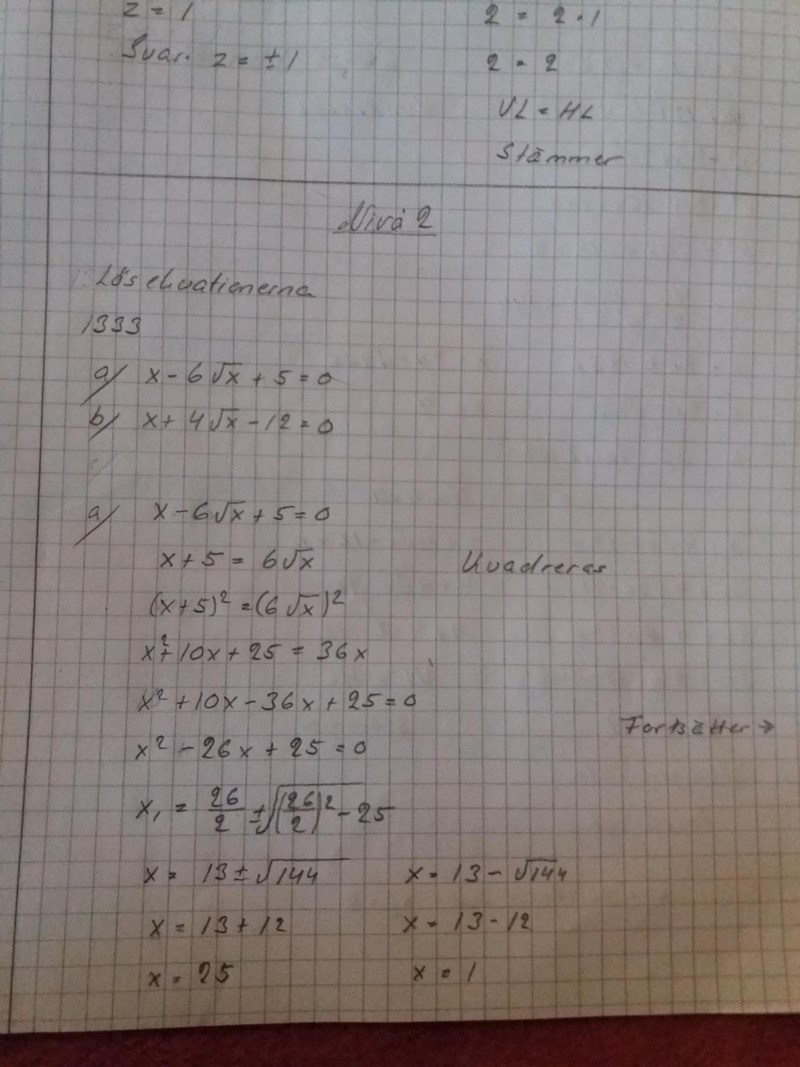 z = 1
2 = 2·1
Svar. z = ±1
2 = 2
VL = HL
Stämmer
Nivå 2
Lös ekvationerna
1333
a) x - 6√x + 5 = 0
b) x + 4√x - 12 = 0
a) x - 6√x + 5 = 0
x + 5 = 6√x Kvadreras
(x+5)² = (6√x)²
x² + 10x + 25 = 36x
x² + 10x - 36x + 25 = 0
Fortsätter →
x² - 26x + 25 = 0
x₁ = 26/2 ± √((26/2)² - 25)
x = 13 ± √144 x = 13 - √144
x = 13 + 12 x = 13 - 12
x = 25 x = 1